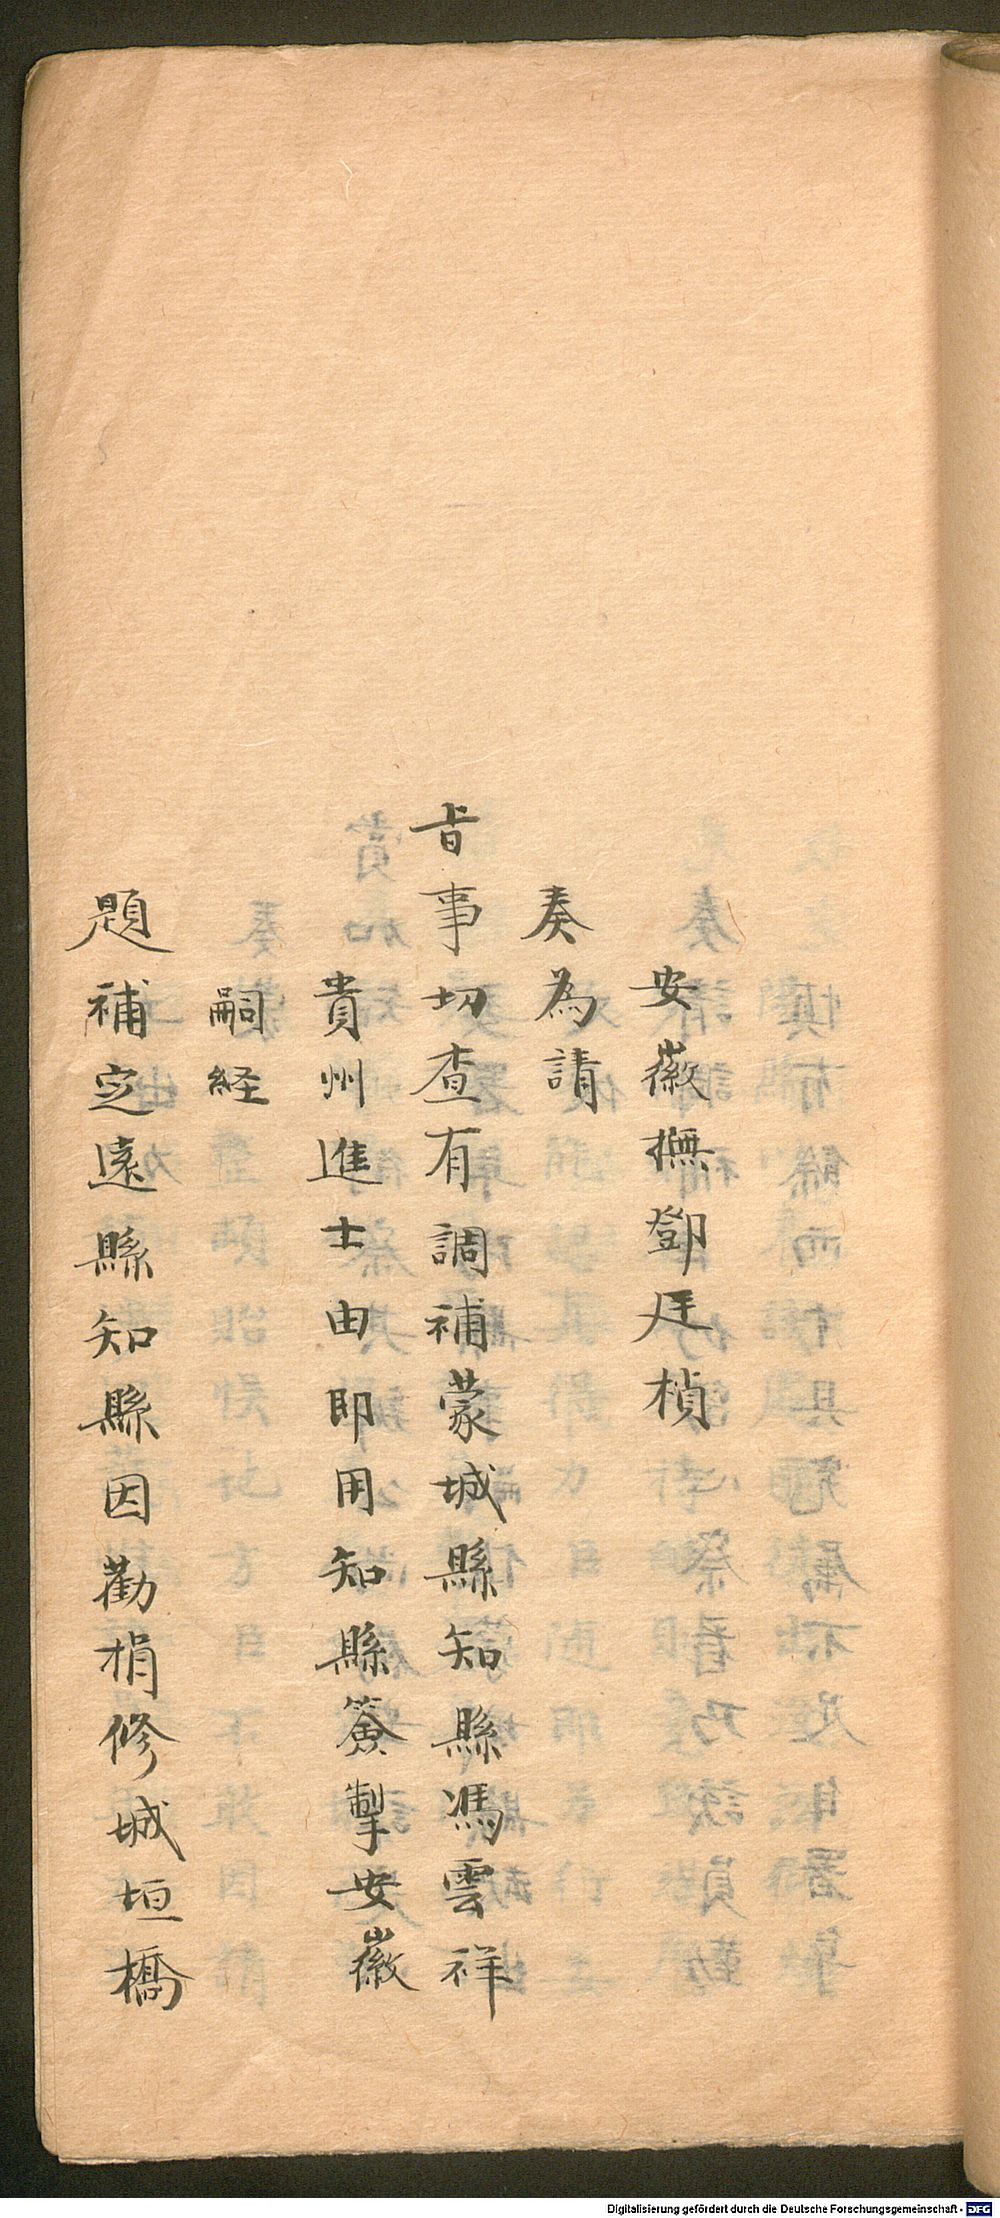 安徽撫鄧廷楨
奏為請
旨事切查有調補蒙城縣知縣馮雲祥
貴州進士由即用知縣簽掣安徽
嗣経
題補定遠縣知縣因勸捐修城垣橋
Digitalisierung gefördert durch die Deutsche Forschungsgemeinschaft - DFG